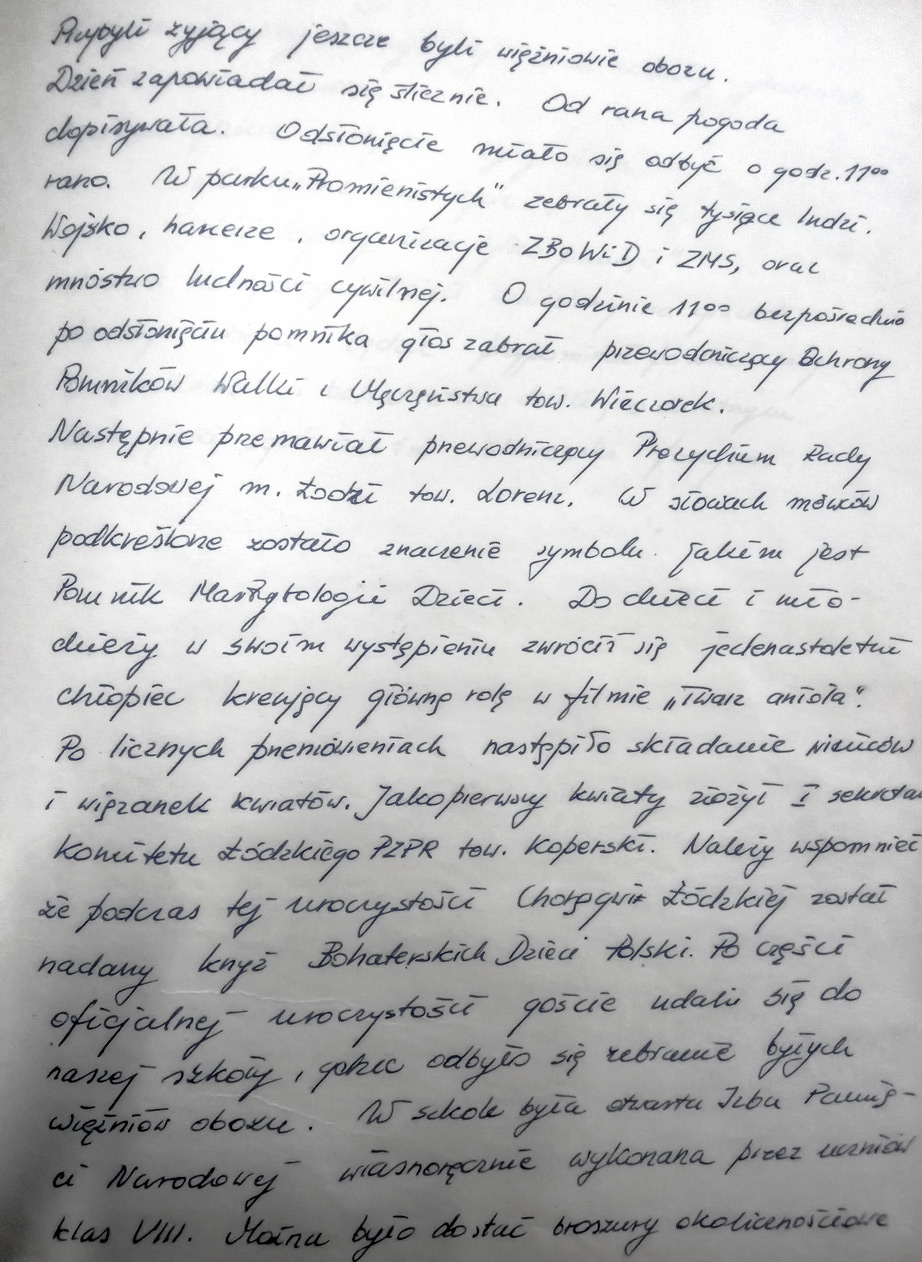 Przybyli żyjący jeszcze byli więźniowie obozu.
Dzień zapowiadał się ślicznie. Od rana pogoda
dopisywała. Odsłonięcie miało się odbyć o godz. 11⁰⁰
rano. W parku „Promienistych" zebrały się tysiące ludzi.
Wojsko, harcerze, organizacje ZBoWiD i ZMS, oraz
mnóstwo ludności cywilnej. O godzinie 11⁰⁰ bezpośrednio
po odsłonięciu pomnika głos zabrał przewodniczący Ochrony
Pomników Walki i Męczeństwa tow. Wieczorek.
Następnie przemawiał przewodniczący Prezydium Rady
Narodowej m. Łodzi tow. Lorenc. W słowach mówców
podkreślone zostało znaczenie symbolu jakim jest
Pomnik Martyrologii Dzieci. Do dzieci i mło-
dzieży w swoim wystąpieniu zwrócił się jedenastoletni
chłopiec kreujący główną rolę w filmie „Twarz anioła".
Po licznych przemówieniach nastąpiło składanie wieńców
i wiązanek kwiatów. Jako pierwszy kwiaty złożył I sekretarz
Komitetu Łódzkiego PZPR tow. Koperski. Należy wspomnieć
że podczas tej uroczystości Chorągwi Łódzkiej został
nadany krzyż Bohaterskich Dzieci Polski. Po części
oficjalnej uroczystości goście udali się do
naszej szkoły, gdzie odbyło się zebranie byłych
więźniów obozu. W szkole była otwarta Izba Pamię-
ci Narodowej własnoręcznie wykonana przez uczniów
klas VIII. Można było dostać broszury okolicznościowe